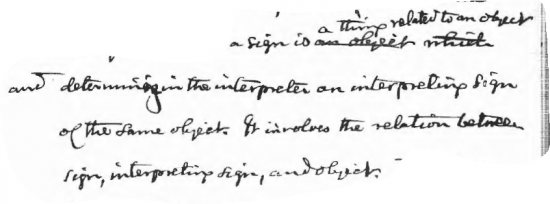 a thing related to an object
a sign is an object which
and determining in the interpreter an interpreting sign
of the same object. It involves the relation between
sign, interpreting sign, and object.